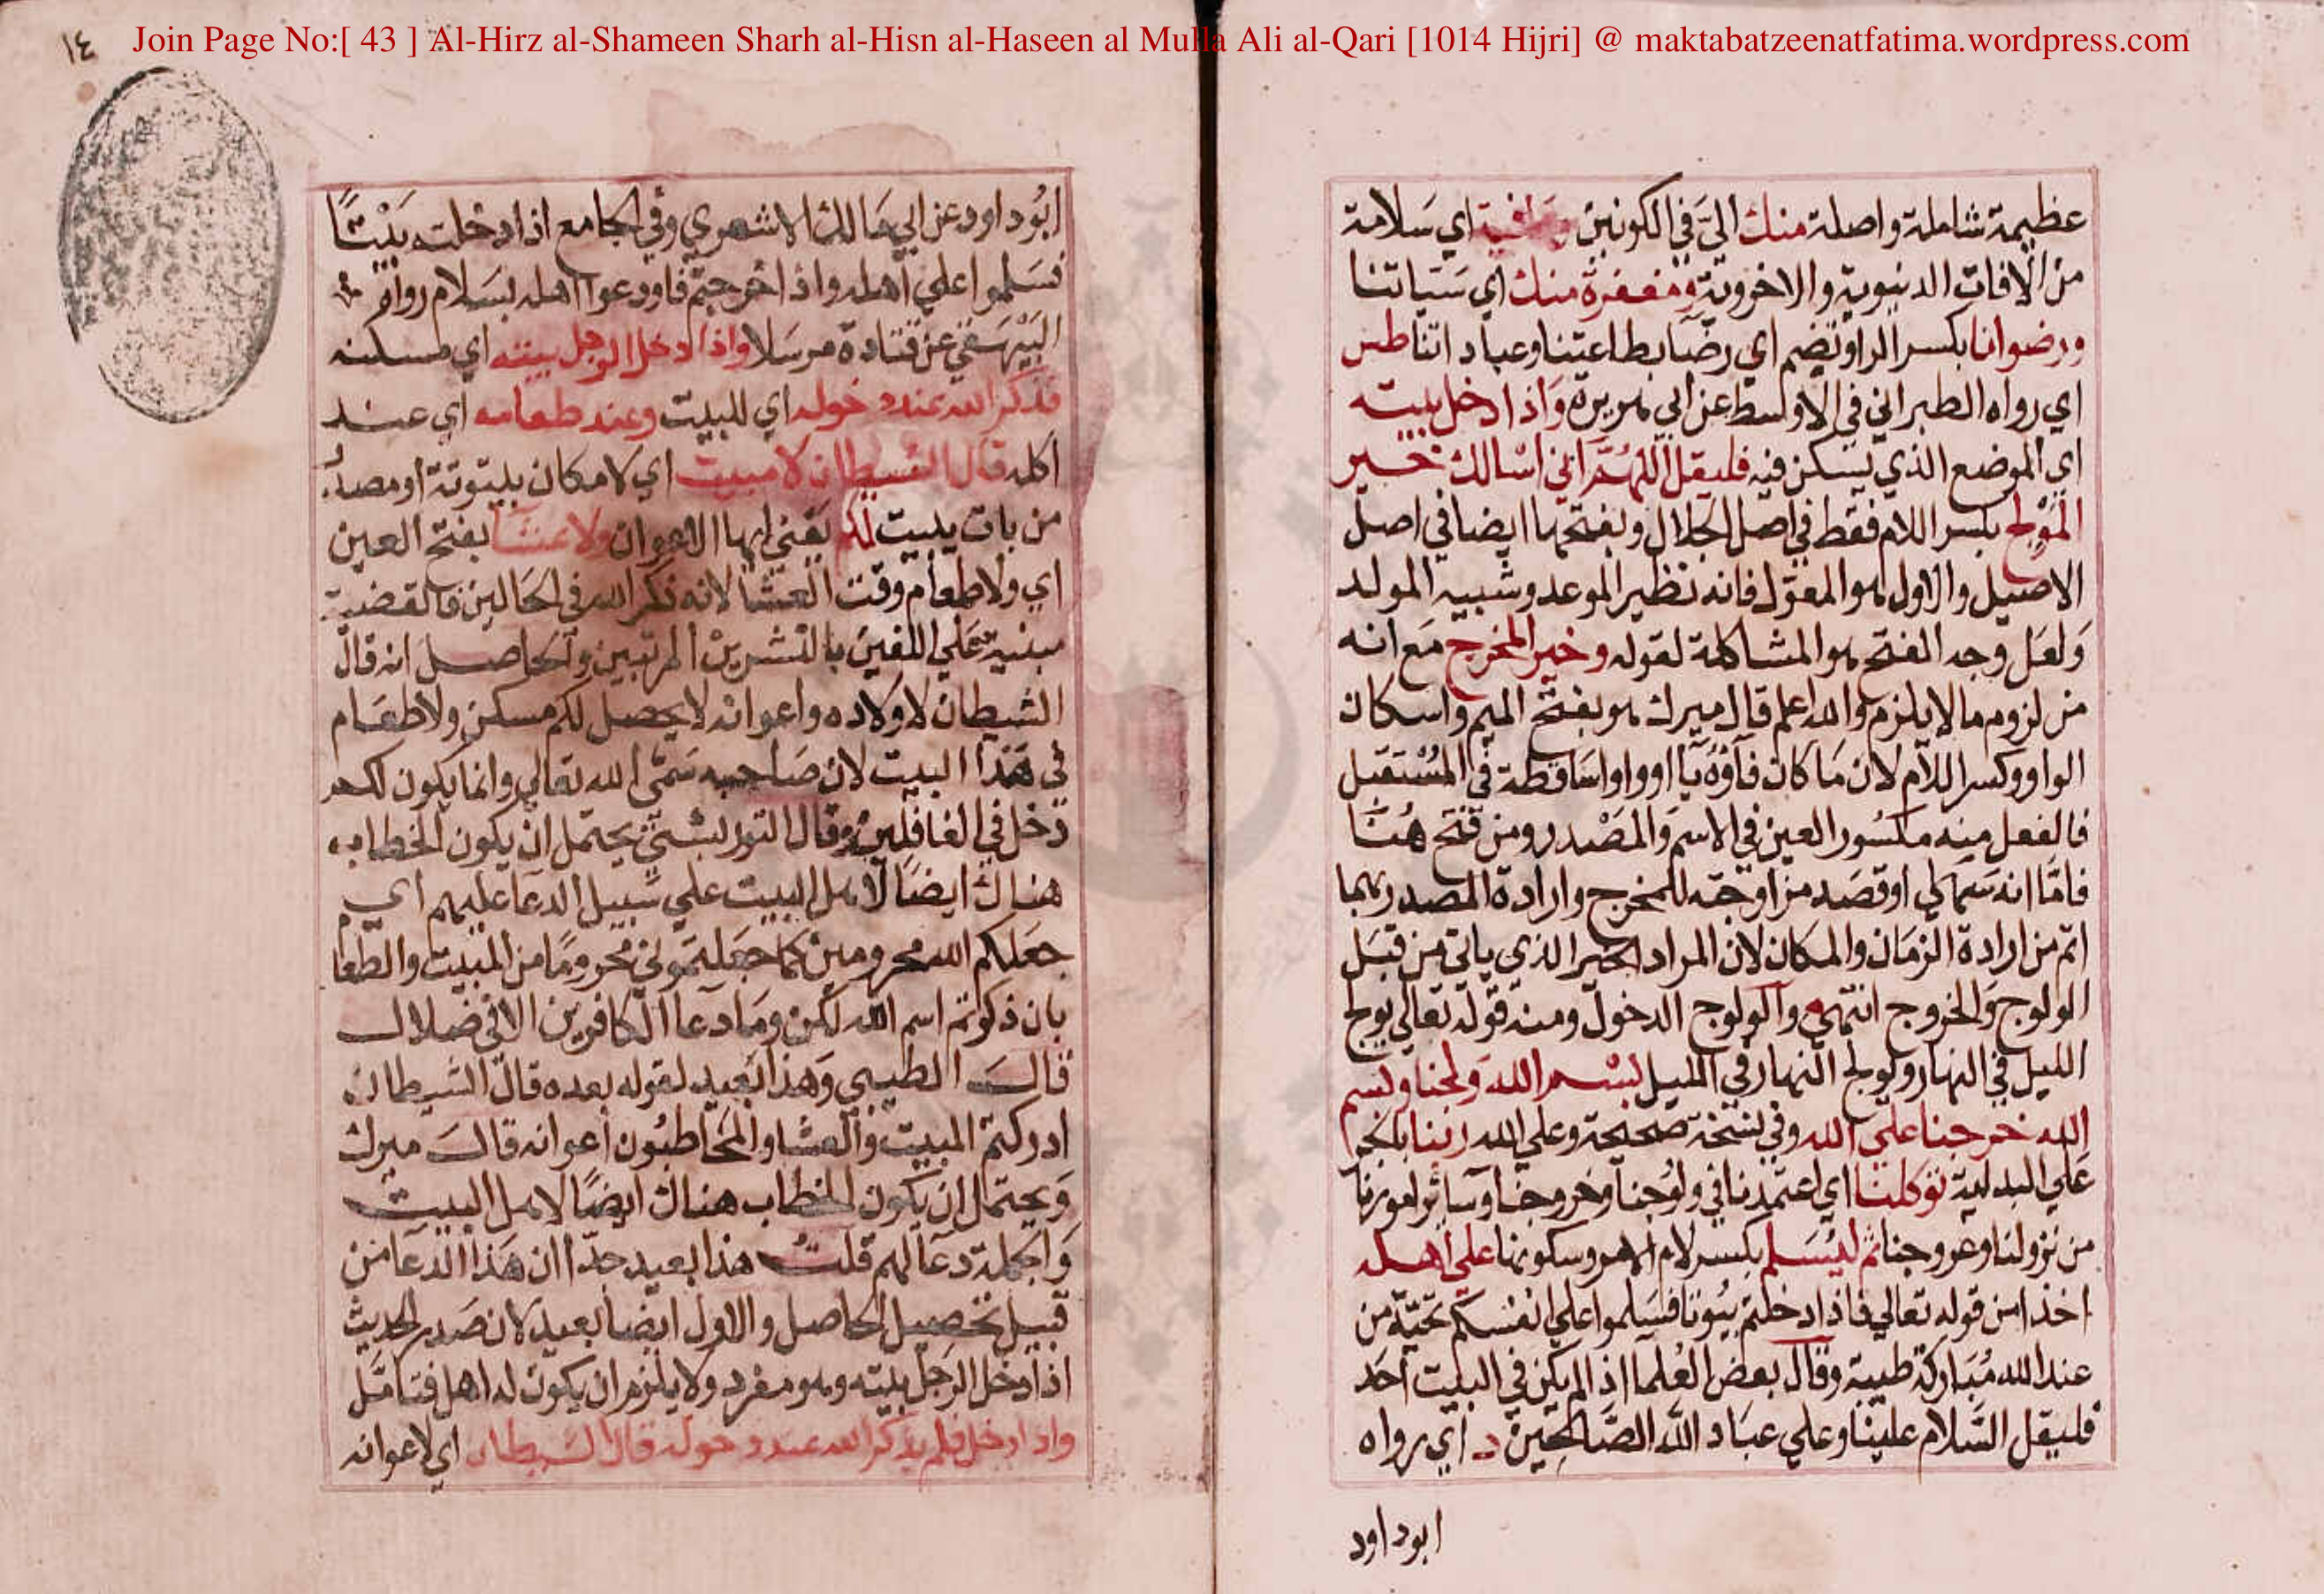 Join Page No:[ 43 ] Al-Hirz al-Shameen Sharh al-Hisn al-Haseen al Mulla Ali al-Qari [1014 Hijri] @ maktabatzeenatfatima.wordpress.com
١٤
عظيمة شاملة واصلة منك اليّ في الكونين وعافية اي سلامة
من الافات الدنيوية والاخروية ومغفرة منك اي سيّاتنا
ورضوانا بكسر الراو تضم اي رضا بطاعتنا وعباداتنا طس
اي رواه الطبراني في الاوسط عن ابي هريرة واذا دخل بيته
اي الموضع الذي يسكن فيه فليقل اللهُمَّ اني اسالك خير
المَوْلِج بكسر اللام فقط في اصل الجلال وبفتحها ايضا في اصل
الاصيل والاول هو المعوّل فانه نظير الموعد وشبيه المولد
وَلعَل وجه الفتح هو المشاكلة لقوله وخير المخرج مَع انه
من لزوم ما لا يلزم والله اعلم قال ميرك هو بفتح الميم واسكان
الواو وكسر اللام لان مَا كان فآؤه يآ او واوا سَاقطة في المُسْتقبل
فالفعل منه مكسُور العين في الاسم وَالمصْدر ومن فتح هُنا
فامّا انه سَها او قصَد مزاوجَته للمخرج وارادة المصدر بهما
اتم من ارادة الزمَان والمكان لان المراد الخير الذي ياتي من قبَل
الولوج وَالخروج انتهى والولوج الدخول ومنه قوله تعالى يولج
الليل في النهار ويولج النهار في الليل بسْم الله وَلجنا وبسم
الله خرجنا على الله وفي نسْخة صحيحة وعلى الله ربنا بالجر
عَلي البدلية توكلنا اي اعتمدنا في ولوُجنا وخروجنا وسائر امورنا
من نزولنا وعروجنا ثم ليُسَلم بكسر لام الامر وسكونها على اهله
اخذا من قوله تعالي فاذا دخلتم بيُوتا فسَلموا علي انفسكم تحيّة من
عند الله مُبَاركة طيبة وقال بعض العُلما اذا لم يكن في البيت احَد
فليقل السَّلام علينا وعلي عبَاد اللَّه الصَّالحين د اي رواه
ابو داود
ابوُ داود عن ابي مَالك الاشعري وفي الجامع اذا دخلتم بَيْتًا
فسَلموا علي اهله واذا خرجتم فاودعوا اهله بسَلام رواه
البَيْهَقي عن قتادة مرسَلا واذا دخل الرجل بيته اي مسكنه
فذكر الله عند دخوله اي للبيت وعند طعامه اي عند
اكله قال الشيطان لا مبيت اي لا مكان بيتوتة او مصدر
من بات يبيت لكم يعني ايها الاعوان ولا عشآ بفتح العين
اي ولا طعام وقت العشا لانه ذكر الله في الحالين فالقضية
مبنية علي اللفين بالنشرين المرتبين والحاصل انه قال
الشيطان لاولاده واعوانه لا يحصل لكم مسكن ولا طعَام
في هَذا البيت لان صَاحبه سَمّى الله تعالي وانما يكون لكم
دخل في الغافلين وقال التوربشتي يحتمل ان يكون الخطاب
هناك ايضًا لاهل البيت علي سَبيل الدعا عليهم اي
جعَلكم الله محرومين كما جعَلتموني محرومًا من المبيت والطعا
بان ذكرتم اسم الله لكن ومَا دعا الكافرين الا في ضلال
قال الطيبي وَهذا بَعيد لقوله بعده قال الشيطان
ادركتم المبيت والعشا والمخَاطبُون اعوانه قالَ ميرك
وَيحتمَل ان يكون الخطاب هناك ايضًا لاهل البيت
وَالجملة دعَا لهم قلتُ هذا بعيد جدّا لان هَذا الدعَا من
قبيل تحصيل الحاصل والاول ايضا بعيد لان صَدر الحديث
اذا دخل الرجل بيته وهو مفرد ولا يلزم ان يكون له اهل فتامّل
واذا دخل فلم يذكر الله عند دخوله قال الشيطان اي لاعوانه